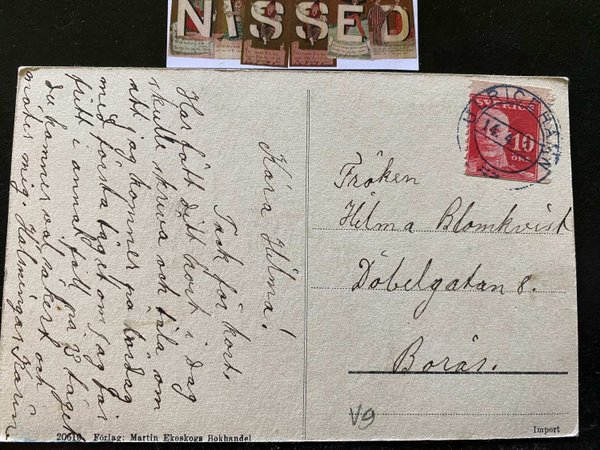 NISSED
Kära Hilma!
Tack för kort.
Har fått ditt kort i dag
skulle skriva och tala om
att jag kommer på lördag
med första tåget om jag får
fritt i annat fall på 23 taget
du kommer väl säkert och
möter mig. Hälningar Karin
ULRICEHAMN
14.4
SVERIGE
10
ÖRE
Fröken
Hilma Blomkvist
Döbelgatan 8.
Borås.
V9
20519 Förlag: Martin Ekeskogs Bokhandel
Import